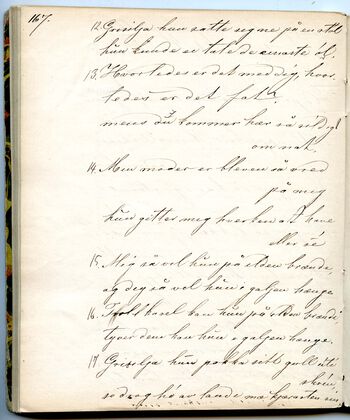 167.
12. Grosilja hun satte seg ne på en stol
hun kunde ei tale de eneste ol.
13. Hvorledes er det med dig, hvor-
ledes er det fat?
mens du kommer her så sildig
om nat.
14. Min moder er bleven så vred
på meg
hun gitter meg hverken at have
eller ée
15. Mig så vel hun på ilden brænde
og dig så vel hun i galjen hænge
16. Troldkarl kan hun på ilden brænde,
tyver dem kan hun i galjen hænge.
17. Grosilja hun pakka sitt gull uti
skrin,
so drog hó av lande mæ kjærasten sin